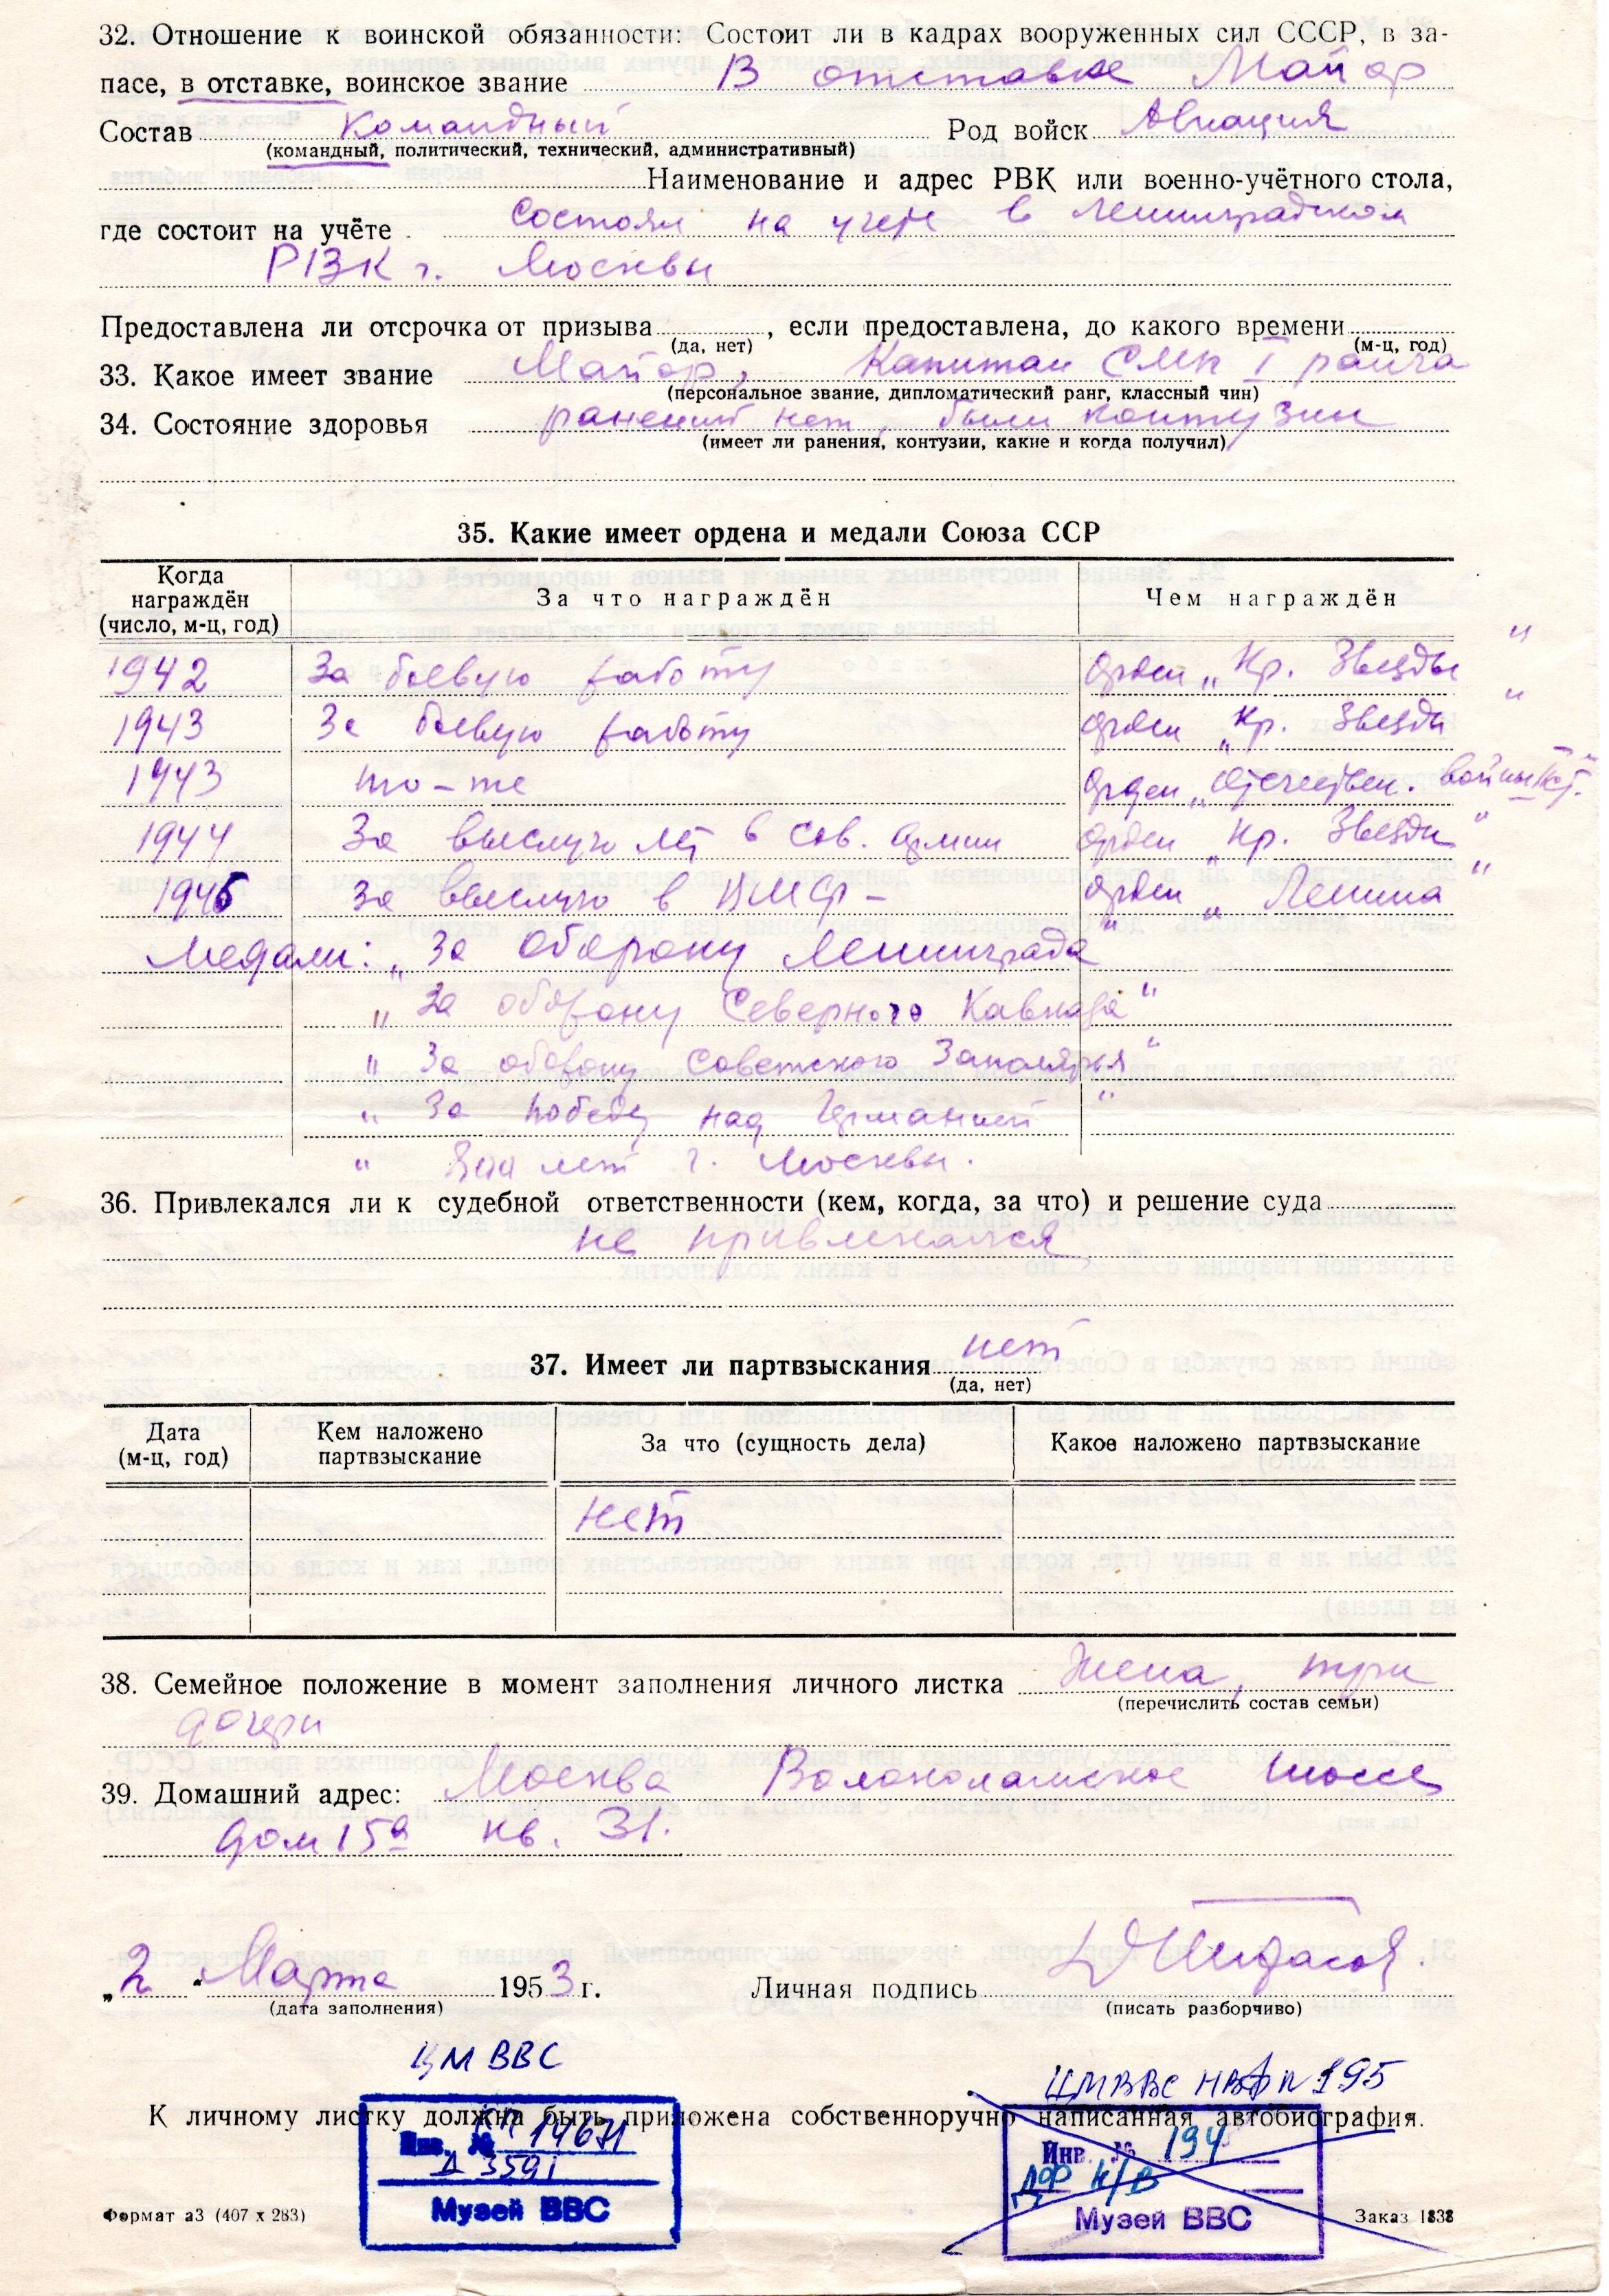 32. Отношение к воинской обязанности: Состоит ли в кадрах вооруженных сил СССР, в за-
пасе, в отставке, воинское звание В отставке Майор
Состав Командный Род войск Авиация
(командный, политический, технический, административный)
Наименование и адрес РВК или военно-учётного стола,
где состоит на учёте состоял на учете в Ленинградском
РВК г. Москвы
Предоставлена ли отсрочка от призыва , если предоставлена, до какого времени
(да, нет) (м-ц, год)
33. Какое имеет звание Майор, Капитан СМП I ранга
(персональное звание, дипломатический ранг, классный чин)
34. Состояние здоровья ранений нет, были контузии
(имеет ли ранения, контузии, какие и когда получил)
35. Какие имеет ордена и медали Союза ССР
Когда награждён (число, м-ц, год) За что награждён Чем награждён
1942 За боевую работу Орден „Кр. Звезды"
1943 За боевую работу Орден „Кр. Звезды"
1943 то-же Орден „Отечествен. войны I ст."
1944 За выслугу лет в Сов. Армии Орден „Кр. Звезды"
1945 За выслугу в ВМФ - Орден „Ленина"
Медали: „За Оборону Ленинграда"
„За оборону Северного Кавказа"
„За оборону Советского Заполярья"
„За победу над Германией"
„ 800 лет г. Москвы.
36. Привлекался ли к судебной ответственности (кем, когда, за что) и решение суда
не привлекался
37. Имеет ли партвзыскания нет
(да, нет)
Дата (м-ц, год) Кем наложено партвзыскание За что (сущность дела) Какое наложено партвзыскание
нет
38. Семейное положение в момент заполнения личного листка Жена, три
(перечислить состав семьи)
дочери
39. Домашний адрес: Москва Волоколамское шоссе
дом 15а кв. 31.
„2" Марта 1953 г. Личная подпись
(дата заполнения) (писать разборчиво)
ЦМ ВВС
ЦМВВС НВФ № 195
К личному листку должна быть приложена собственноручно написанная автобиография.
КП 14671
Инв. №
Д 3591
Музей ВВС
Инв. № 194
Музей ВВС
Формат а3 (407 х 283)
Заказ 1838